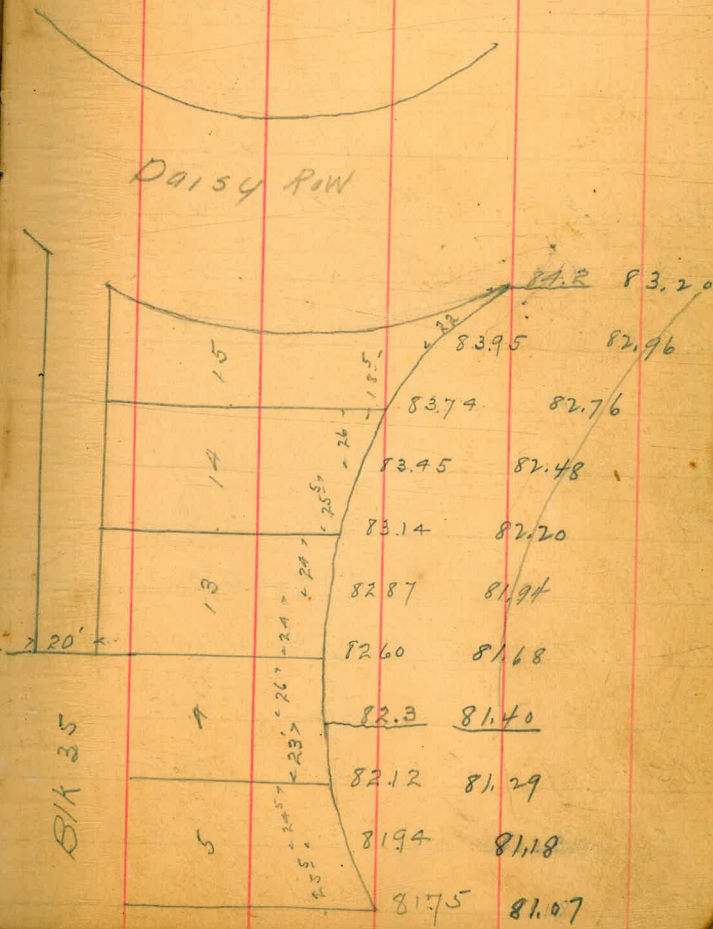 Daisy Row
84.2 83.20
22
83.95 82.96
15
18⁵
83.74 82.76
26
14
83.45 82.48
25⁵
83.14 82.20
24
13
82 87 81.94
24
20'
82 60 81.68
26
4
82.3 81.40
23
Blk 35
82.12 81.29
24⁵
5
81 94 81,18
25⁵
81 75 81.07